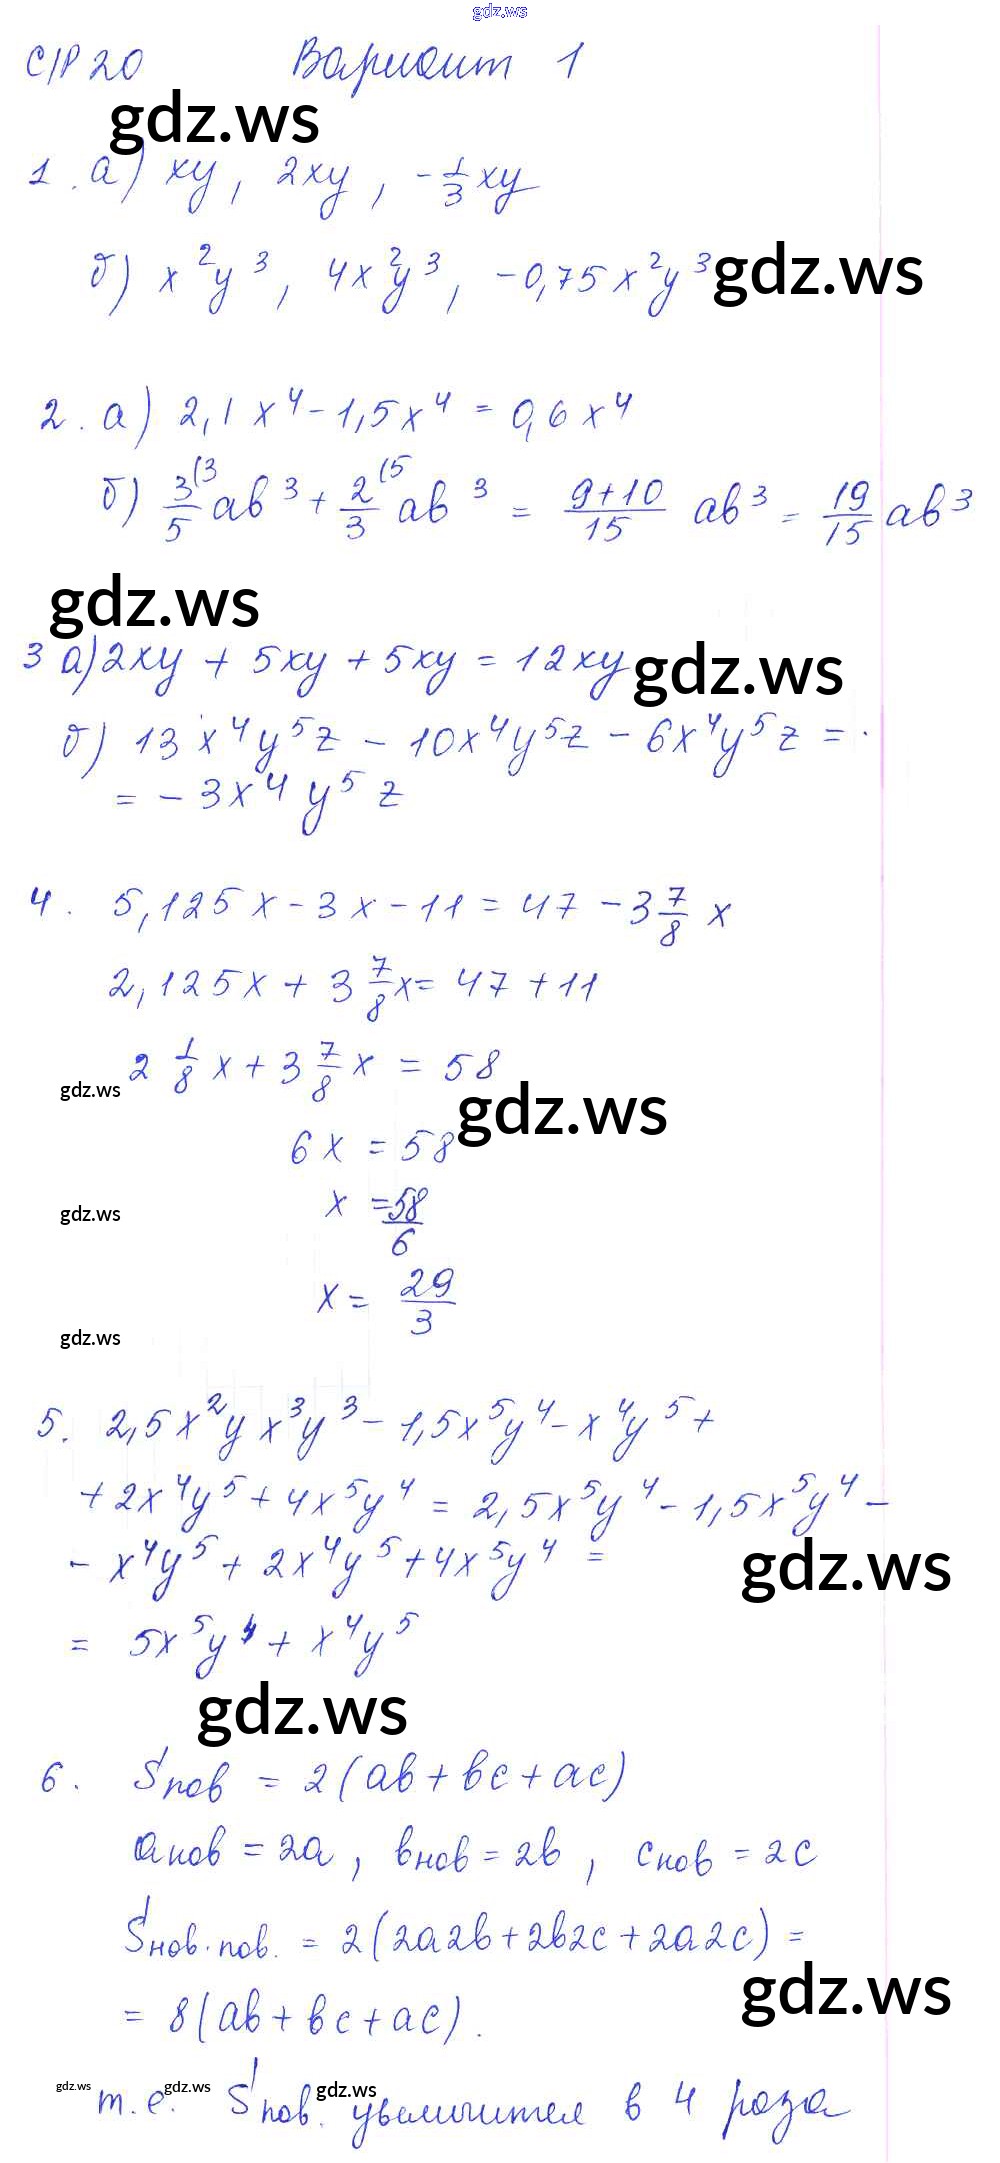 gdz.ws
С/Р 20 Вариант 1
gdz.ws
1. а) xy, 2xy, -1/3 xy
б) x²y³, 4x²y³, -0,75x²y³ gdz.ws
2. а) 2,1x⁴ - 1,5x⁴ = 0,6x⁴
б) 3/5 (3 ab³ + 2/3 (5 ab³ = (9+10)/15 ab³ = 19/15 ab³
gdz.ws
3 а) 2xy + 5xy + 5xy = 12xy gdz.ws
б) 13x⁴y⁵z - 10x⁴y⁵z - 6x⁴y⁵z =
= -3x⁴y⁵z
4. 5,125x - 3x - 11 = 47 - 3 7/8 x
2,125x + 3 7/8 x = 47 + 11
2 1/8 x + 3 7/8 x = 58
gdz.ws gdz.ws
6x = 58
gdz.ws x = 58/6
x = 29/3
gdz.ws
5. 2,5x²y x³y³ - 1,5x⁵y⁴ - x⁴y⁵ +
+ 2x⁴y⁵ + 4x⁵y⁴ = 2,5x⁵y⁴ - 1,5x⁵y⁴ -
- x⁴y⁵ + 2x⁴y⁵ + 4x⁵y⁴ = gdz.ws
= 5x⁵y⁴ + x⁴y⁵
gdz.ws
6. Sпов = 2(ab + bc + ac)
aнов = 2a, bнов = 2b, cнов = 2c
Sнов.пов. = 2(2a2b + 2b2c + 2a2c) =
= 8(ab + bc + ac). gdz.ws
gdz.ws т.е. gdz.ws Sпов. gdz.ws увеличител в 4 раза